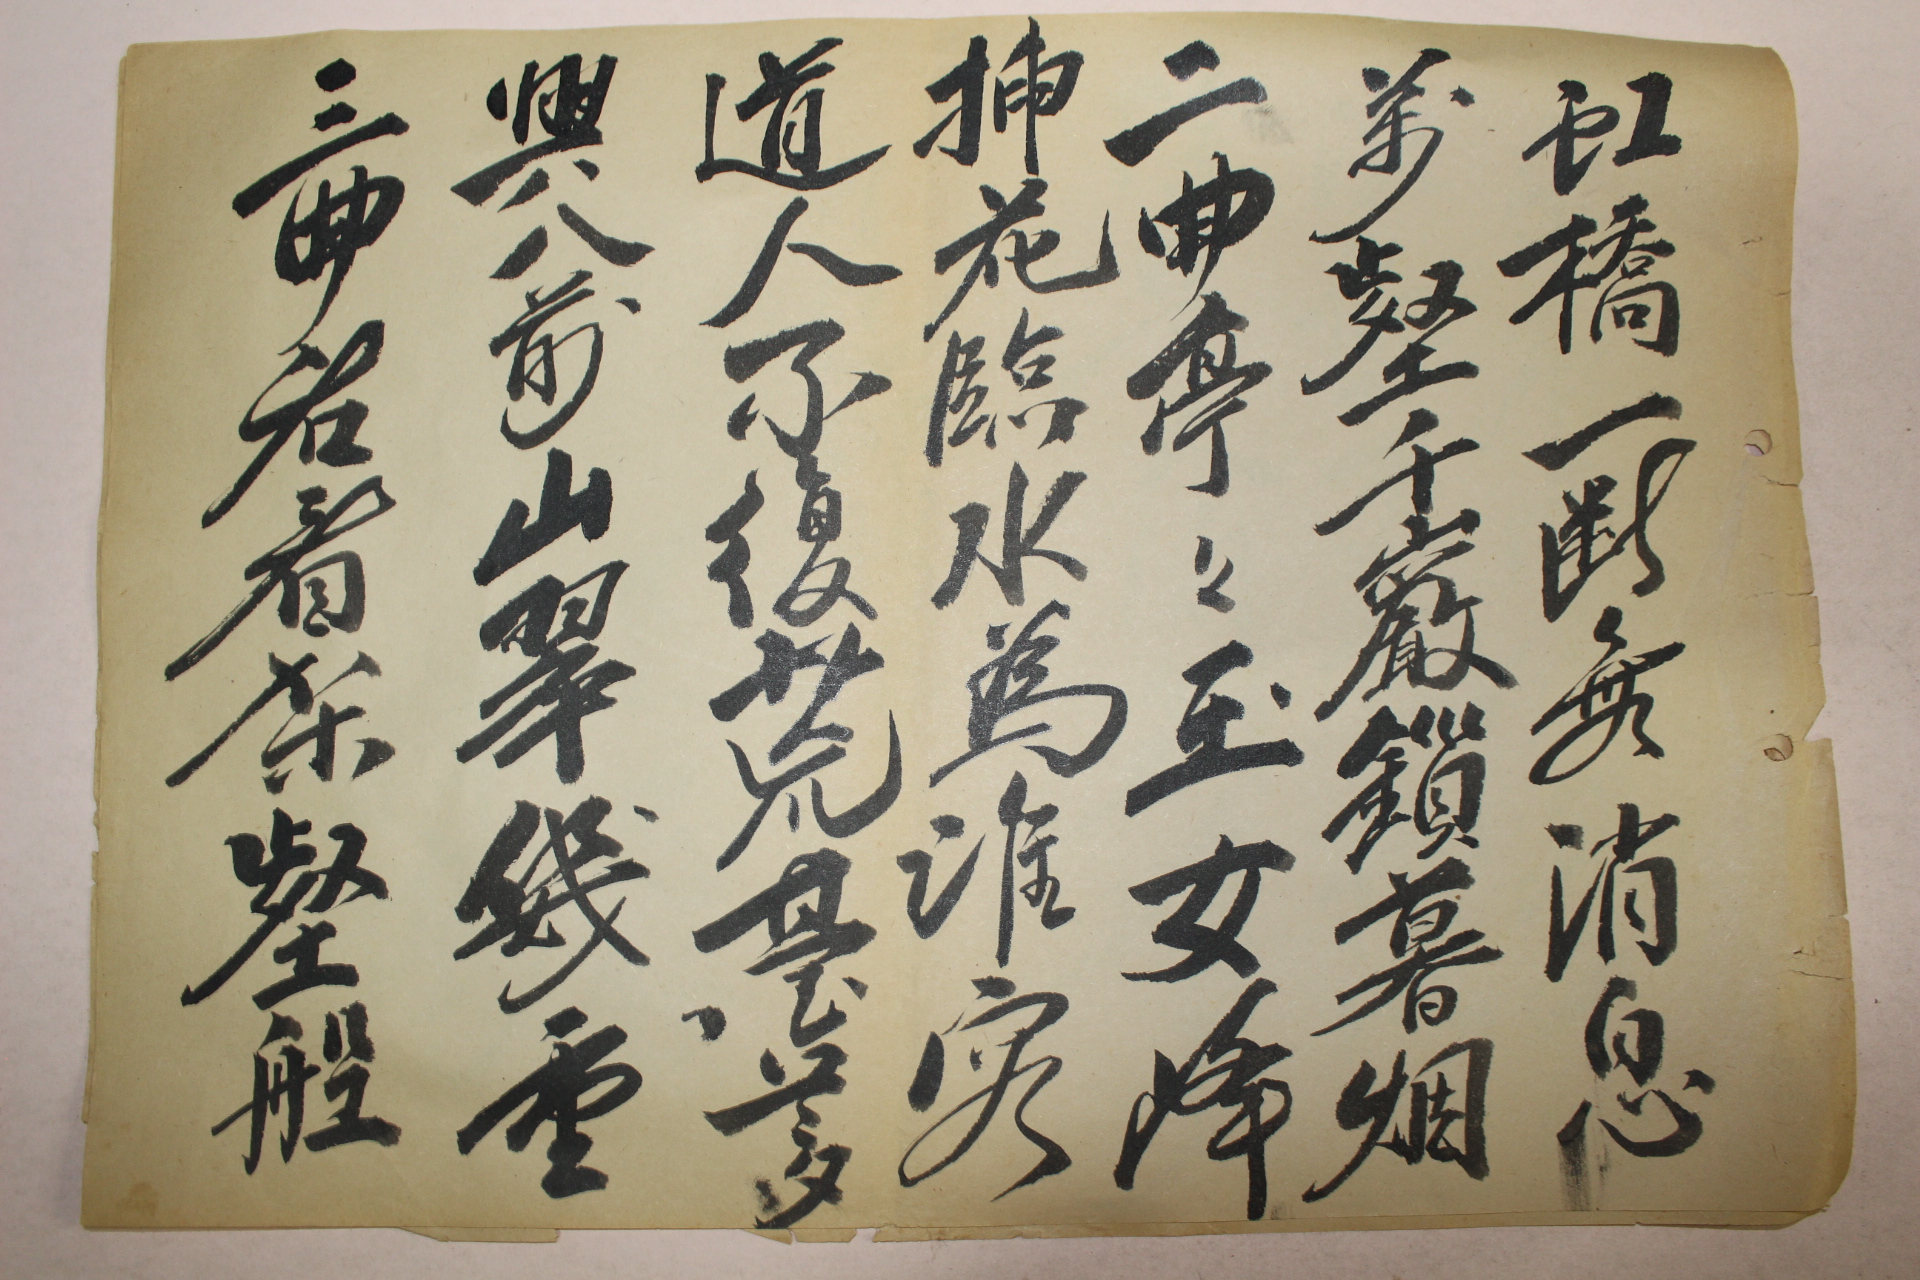 虹橋一斷無消息
萬壑千巖鎖暮烟
二曲亭〻玉女峰
插花臨水為誰容
道人不復荒臺夢
興入前山翠幾重
三曲君看架壑船